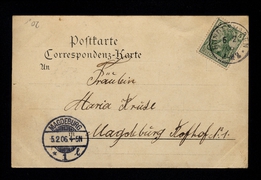 Postkarte
Correspondenz-Karte
An
Fräulein
Maria Kruse
Magdeburg
MAGDEBURG
5.2.06. 4-5N
* 1 z